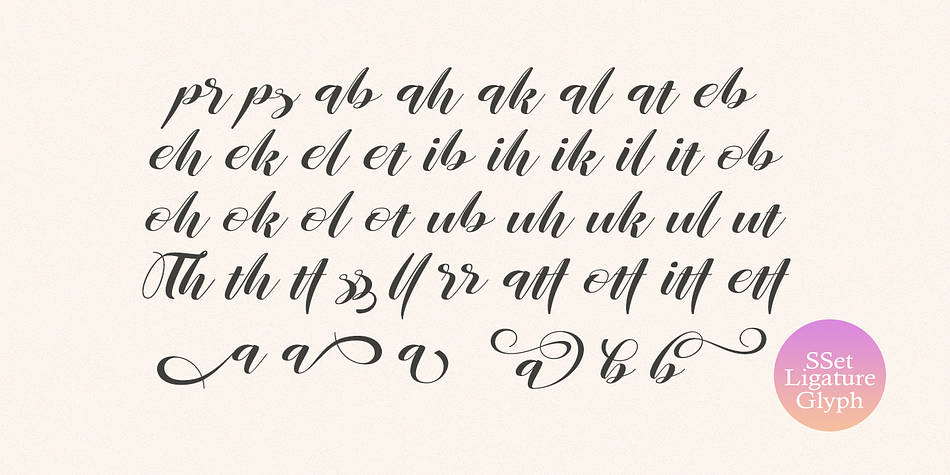 pr ps ab ah ak al at eb
eh ek el et ib ih ik il it ob
oh ok ol ot ub uh uk ul ut
Th th tt ss ll rr att ott itt ett
a a a a b b
SSet
Ligature
Glyph